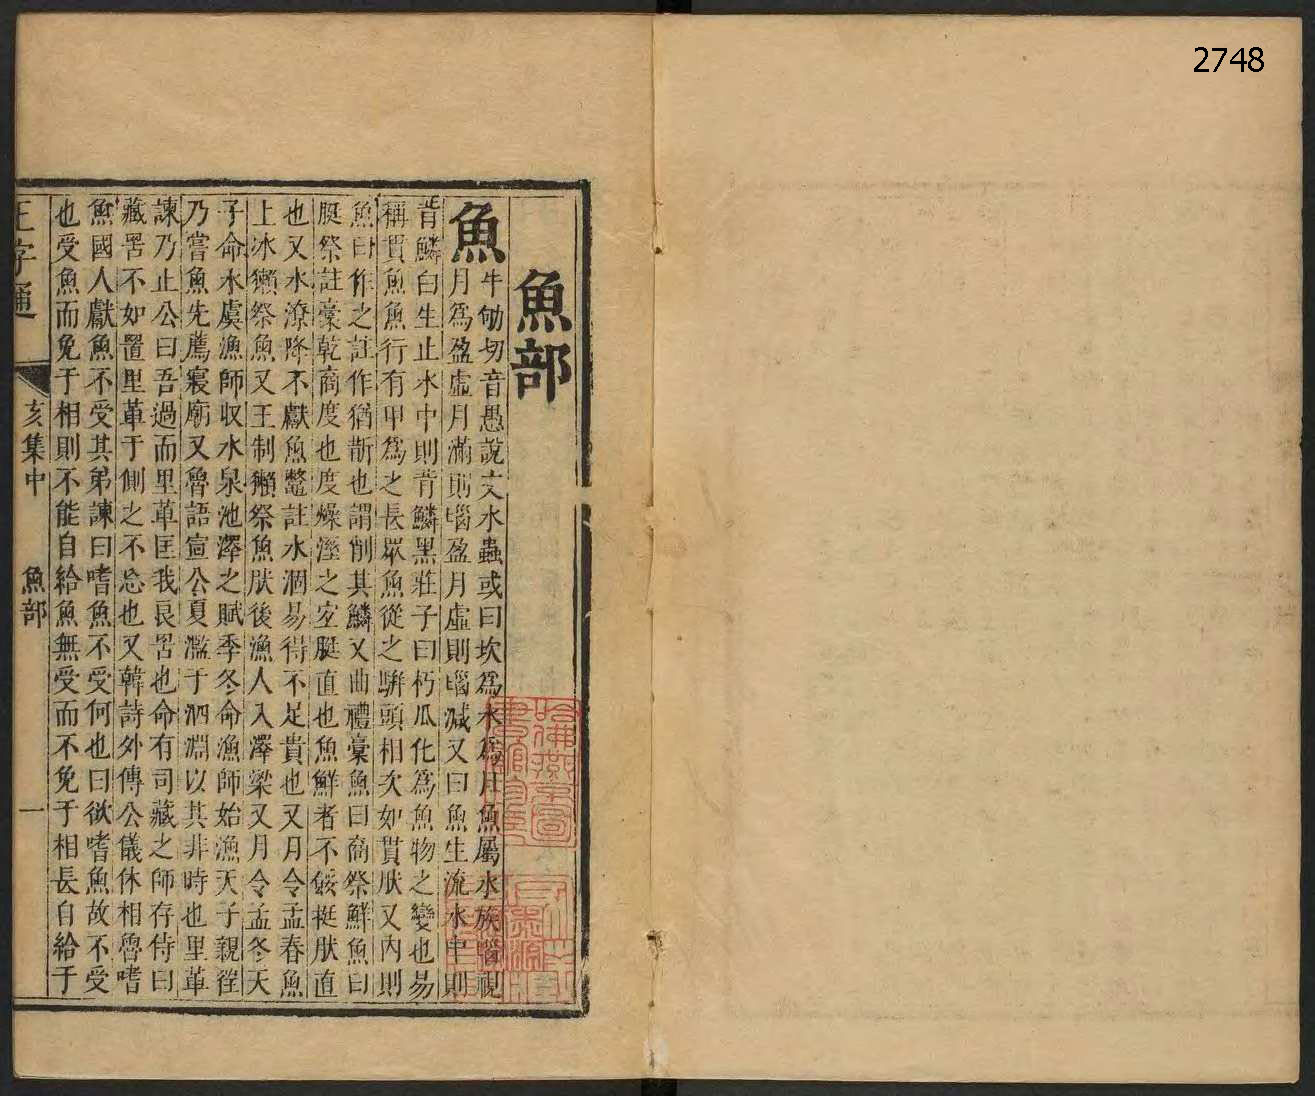 2748
魚部
魚
牛劬切音愚說文水蟲或曰坎爲水爲月魚屬水族腦視
月爲盈虛月滿則腦盈月虛則腦減又曰魚生流水中則
背鱗白生止水中則背鱗黑莊子曰朽瓜化爲魚物之變也易
稱貫魚魚行有甲爲之長眾魚從之騈頭相次如貫狀又內則
魚曰作之註作猶斮也謂削其鱗又曲禮槀魚曰商祭鮮魚曰
脡祭註槀乾商度也度燥溼之宐脡直也魚鮮者不餒挺狀直
也又水潦降不獻魚鼈註水涸易得不足貴也又月令孟春魚
上冰獺祭魚又王制獺祭魚肰後漁人入澤梁又月令孟冬天
子命水虞漁師収水泉池澤之賦季冬命漁師始漁天子親徃
乃嘗魚先薦寢廟又魯語宣公夏濫于泗淵以其非時也里革
諫乃止公曰吾過而里革匡我良罟也命有司藏之師存侍曰
藏罟不如置里革于側之不忘也又韓詩外傳公儀休相魯嗜
魚國人獻魚不受其弟諫曰嗜魚不受何也曰欲嗜魚故不受
也受魚而免于相則不能自給魚無受而不免于相長自給于
正字通
亥集中
魚部
一